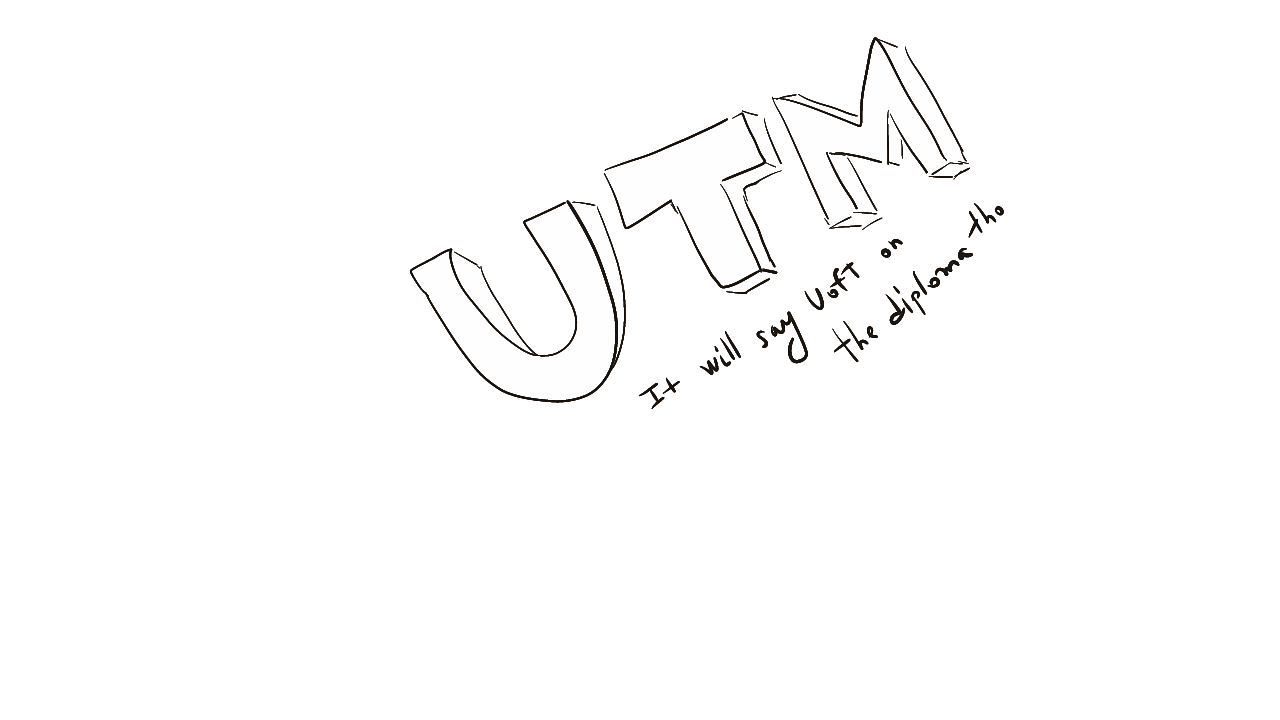 UTM
It will say UofT on
the diploma tho